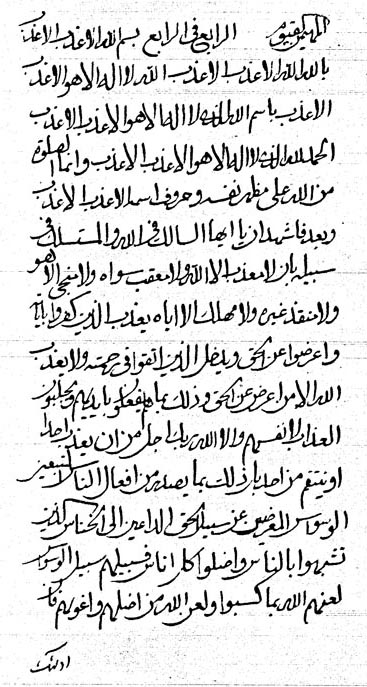 المهيمن القيوم الرابع في الرابع بسم الله الاعذب الاعذب
بالله الله الاعذب الاعذب الله لا اله الا هو الاعذب
الاعذب باسم الله الذي لا اله الا هو الاعذب الاعذب
الحمد لله الذي لا اله الا هو الاعذب الاعذب وانما الصلوة
من الله على مظهر نفسه وحروف اسمه الاعذب الاعذب
وبعد فاشهد ان يا ايها السالك في الله والمتسلك في
سبيله بان لا معذب الا الله ولا معقب سواه ولا منجي الا هو
ولا منقذ غيره ولا مهلك الا اياه يعذب الذين كفروا باياته
واعرضوا عن الحق ويدخل الذين اتقوا في رحمته ولا يعذب
الله الا من اعرض عن الحق وذلك بما هم يفعلون بايديهم ويجلبون
العذاب لانفسهم والا الله ربك اجل من ان يعذب احدا
او ينتقم من احد بل ذلك بما يصدر من افعال الناس
الوسواس المعرضين عن سبيل الحق الداعين الى الخناس الذين
تشبهوا بالناس واضلوا كل اناس فسبيلهم سبيل الوسواس
لعنهم الله بما كسبوا ولعن الله من اضلهم واغويهم فان
اولئك